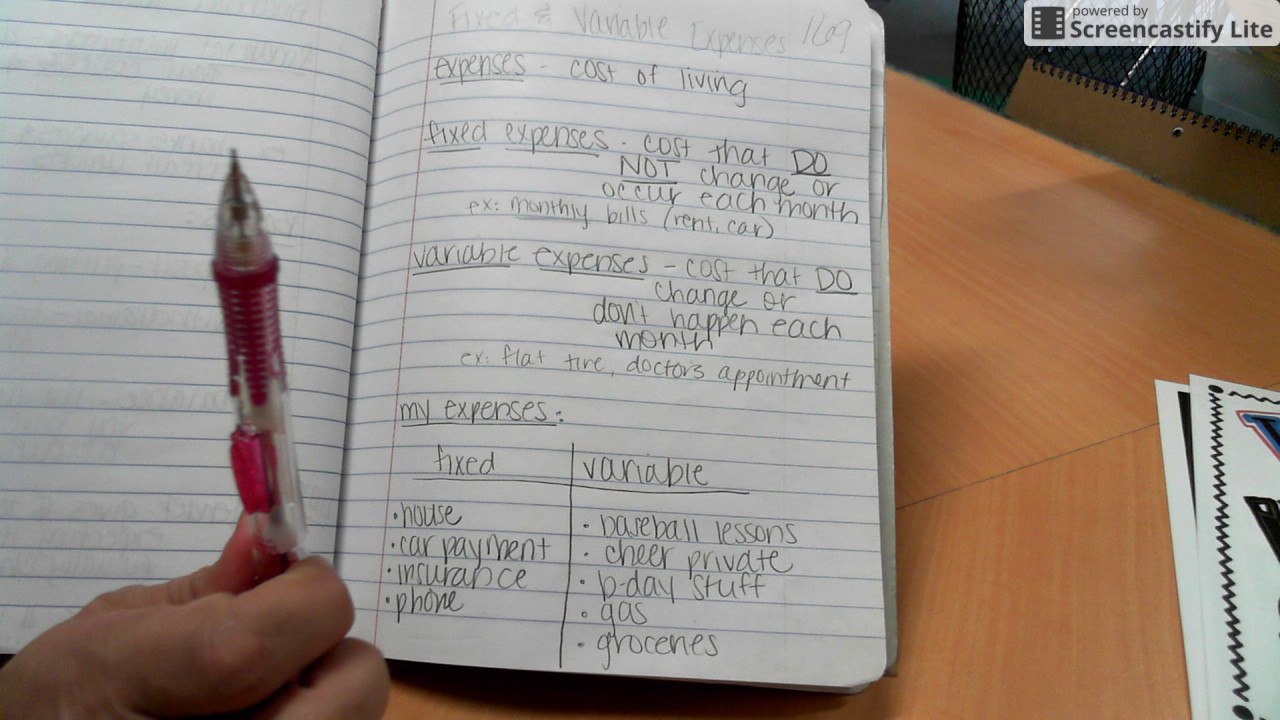 powered by
Screencastify Lite
Fixed & Variable Expenses
expenses - cost of living
fixed expenses - cost that DO
NOT change or
occur each month
ex: monthly bills (rent, car)
variable expenses - cost that DO
change or
don't happen each
month
ex: flat tire, doctors appointment
my expenses:
fixed variable
• house • baseball lessons
• car payment • cheer private
• insurance • b-day stuff
• phone • gas
• groceries